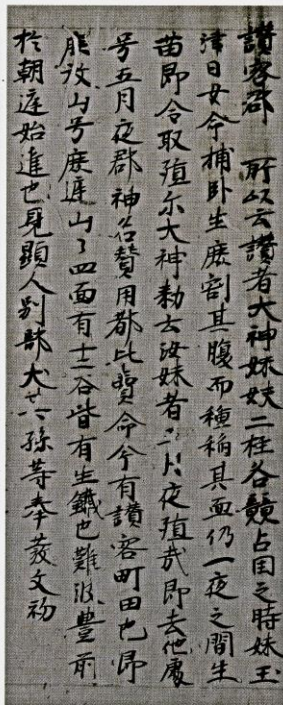 讃容郡　所以云讃者大神妹妋二柱各競占国之時妹玉
津日女命捕臥生鹿割其腹而種稲其血仍一夜之間生
苗即令取殖尓大神勅云汝妹者五月夜殖哉即去他處
号五月夜郡神名賛用都比賣命今有讃容町田也即
鹿放山号鹿遅山々四面有十二谷皆有生鐡也難波豊前
於朝庭始進也見顕人別部犬其孫等奉發之初